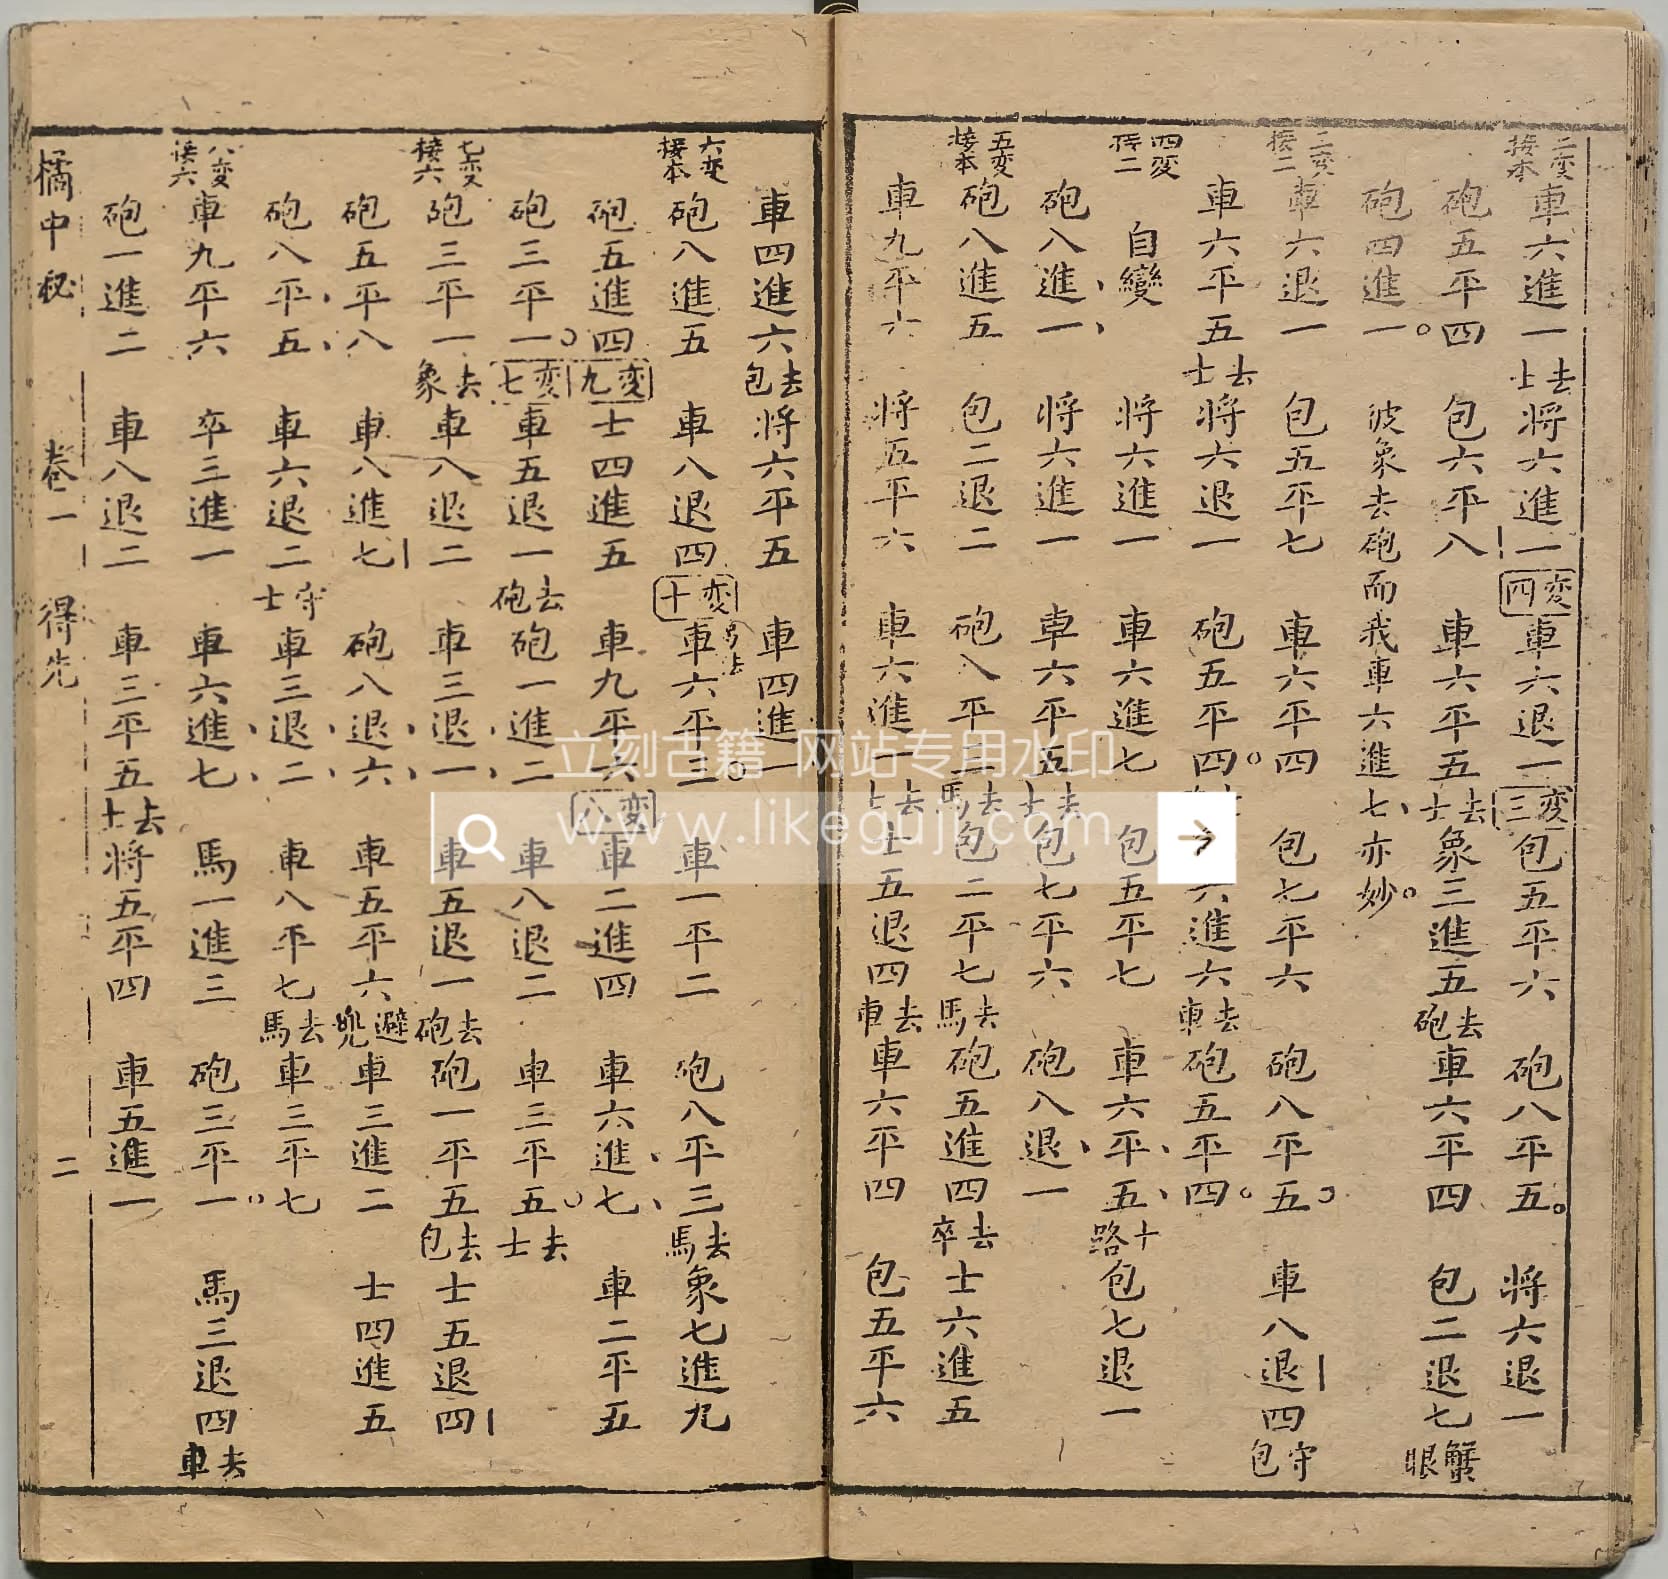 二変接本
車六進一去士 将六進一 四変 車六退一 三変 包五平六 砲八平五 将六退一
砲五平四 包六平八 車六平五去士 象三進五去砲 車六平四 包二退七蟹眼
砲四進一 彼象去砲而我車六進七亦妙
三変接二
車六退一 包五平七 車六平四 包七平六 砲八平五 車八退四守包
車六平五去士 将六退一 砲五平四 六進六去車 砲五平四
四変接二
自變 将六進一 車六進七 包五平七 車六平五十路 包七退一
砲八進一 将六進一 車六平五去士 包七平六 砲八退一
五変接本
砲八進五 包二退二 砲八平三去馬 包二平七去馬 砲五進四去卒 士六進五
車九平六 将五平六 車六進一去士 士五退四去車 車六平四 包五平六
車四進六去包 将六平五 車四進一
六変接本
砲八進五 車八退四 十変 車六平三 車一平二 砲八平三去馬 象七進九
砲五進四 九変 士四進五 車九平六 八変 車二進四 車六進七 車二平五
砲三平一 七変 車五退一去砲 砲一進二 車八退二 車三平五去士
七変接六
砲三平一去象 車八退二 車三退一 車五退一去砲 砲一平五去包 士五退四
砲五平八 車八進七 砲八退六 車五平六避兇 車三進二 士四進五
砲八平五 車六退二守士 車三退二 車八平七去馬 車三平七
八変接六
車九平六 卒三進一 車六進七 馬一進三 砲三平一 馬三退四去車
砲一進二 車八退二 車三平五去士 将五平四 車五進一
橘中秘 卷一 得先 二
立刻古籍 网站专用水印
www.likeguji.com